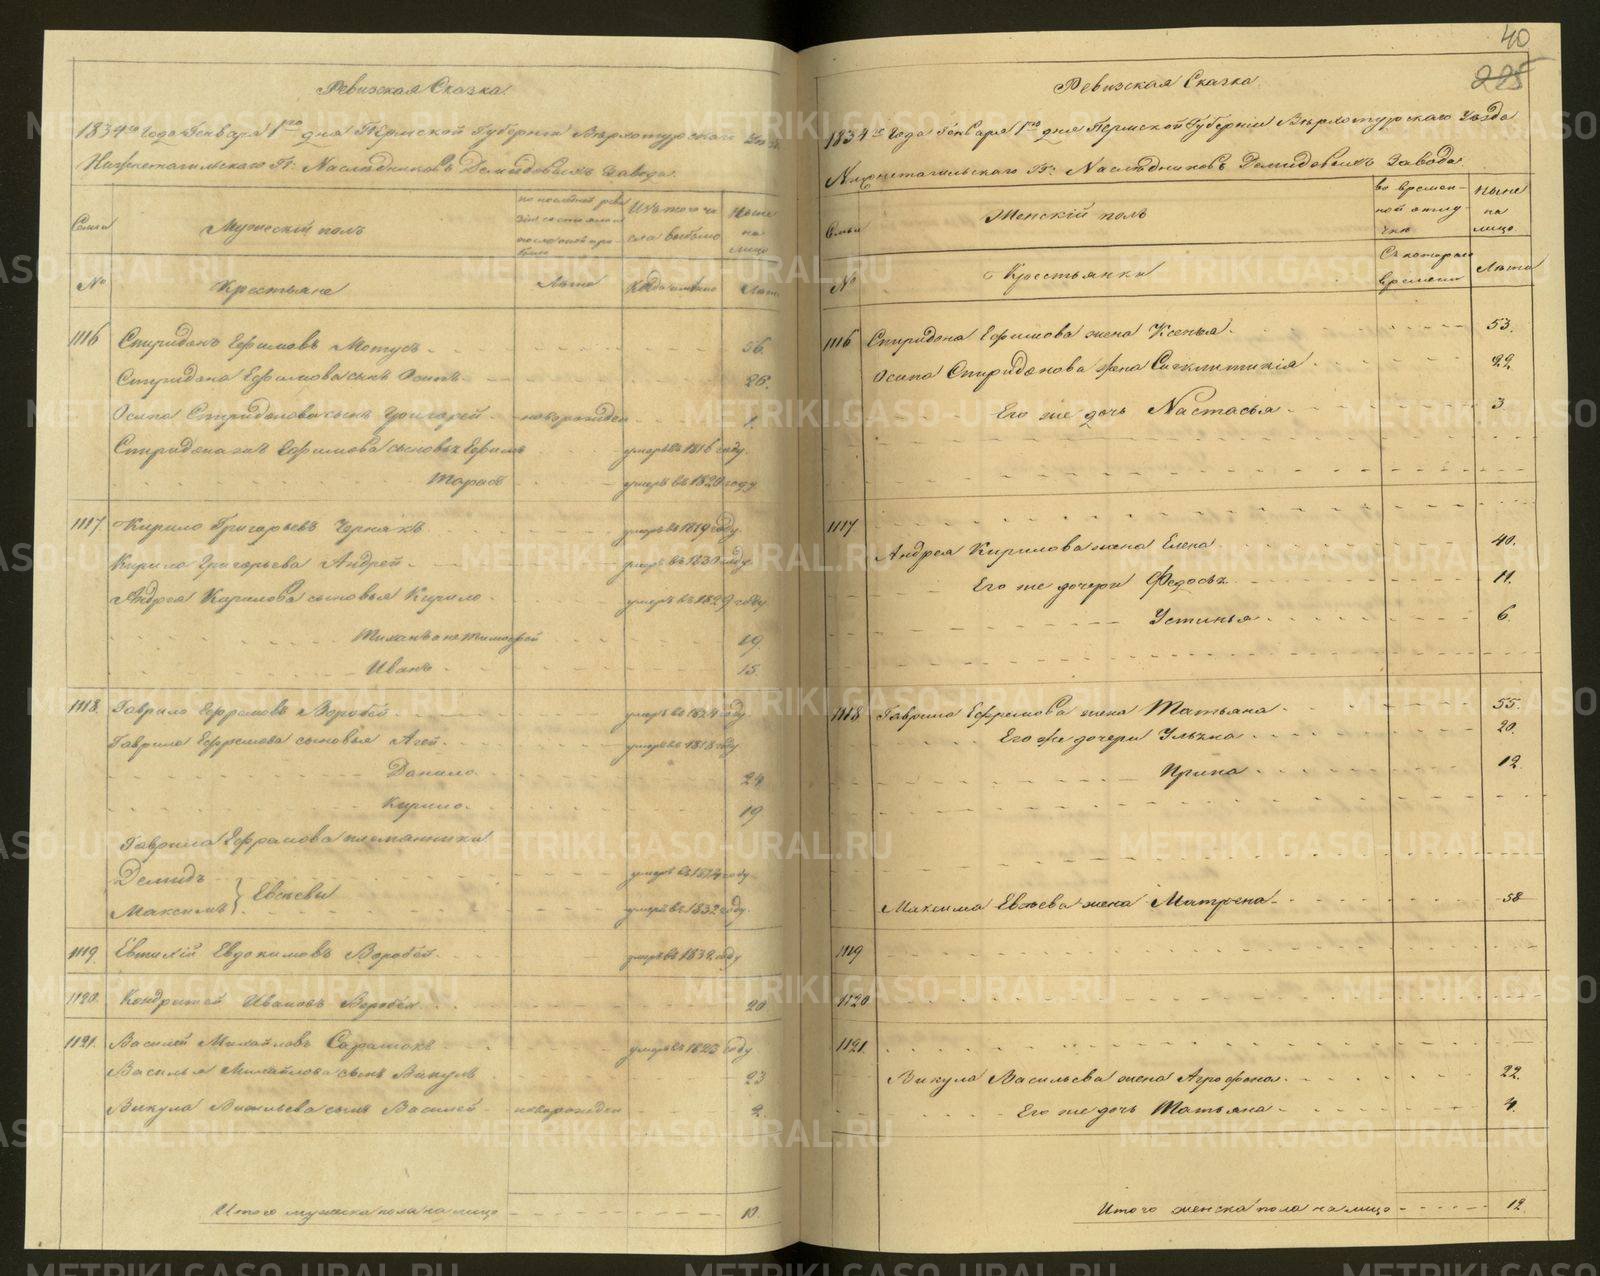 Ревизская Сказка.
1834го Года Генваря 1го дня Пермской Губерніи Верхотурскаго
Нижнетагильскаго Гг: Наслѣдниковъ Демидовыхъ Завода.
Семьи
Мужескій полъ
по последней реви
зіи состояло и
Изъ того чи
сла выбыло
Ныне
на
лицо
№
Крестьяне
Лета
Когда именно
Лета
1116 Спиридонъ Ефимовъ Мотусъ 56.
Спиридона Ефимова сынъ Осипъ 26.
Осипа Спиридонова сынъ Григорей новорожден 1.
Спиридона Ефимова сыновья Ефимъ умеръ въ 1816 году.
Тарасъ умеръ въ 1820 году
1117 Кирило Григорьевъ Чернякъ умеръ въ 1819 году.
Кирило Григорьева Андрей умеръ въ 1830 году.
Андрея Кирилова сыновья Кирило умеръ въ 1829 году.
Тимофей 19.
Иванъ 15.
1118. Гаврило Ефремовъ Воробей умеръ въ 1824 году
Гаврила Ефремова сыновья Агей умеръ въ 1818 году
Данило 24
Кирило 19
Гаврила Ефремова племянники
Демидъ умеръ въ году
Максимъ } Евсеевы умеръ въ 1832 году.
1119. Евдокимовъ Воробей умеръ въ 1832 году
1120. Кондратей Ивановъ 20
1121. Василей Михайловъ умеръ въ 1823 году
Василья Михайлова сынъ Викулъ 23
Викула Васильева сынъ Василей новорожден 2.
Итого мужеска пола на лицо 10.
40
225
Ревизская Сказка.
1834го Года Генваря 1го дня Пермской Губерніи Верхотурскаго Уезда
Нижнетагильскаго Гг: Наслѣдниковъ Демидовыхъ Завода.
Семьи
Женскій полъ
во времен-
ной отлу-
чке
Ныне
на
лицо
№
Крестьянки
Съ котораго
времени
Лета
1116 Спиридона Ефимова жена Ксенья 53.
Осипа Спиридонова жена Сигклитикія 22.
Его же дочь Настасья 3.
1117
Андрея Кирилова жена Елена 40.
Его же дочери Федосья 11.
Устинья 6.
1118 Гаврила Ефремова жена Татьяна 55.
Его же дочери Ульяна 20.
Ирина 12.
Максима Евсеева жена Матрена 58
1119
1120
1121.
Викула Васильева жена Агрофена 22.
Его же дочь Татьяна 4.
Итого женска пола на лицо 12.
METRIKI.GASO-URAL.RU